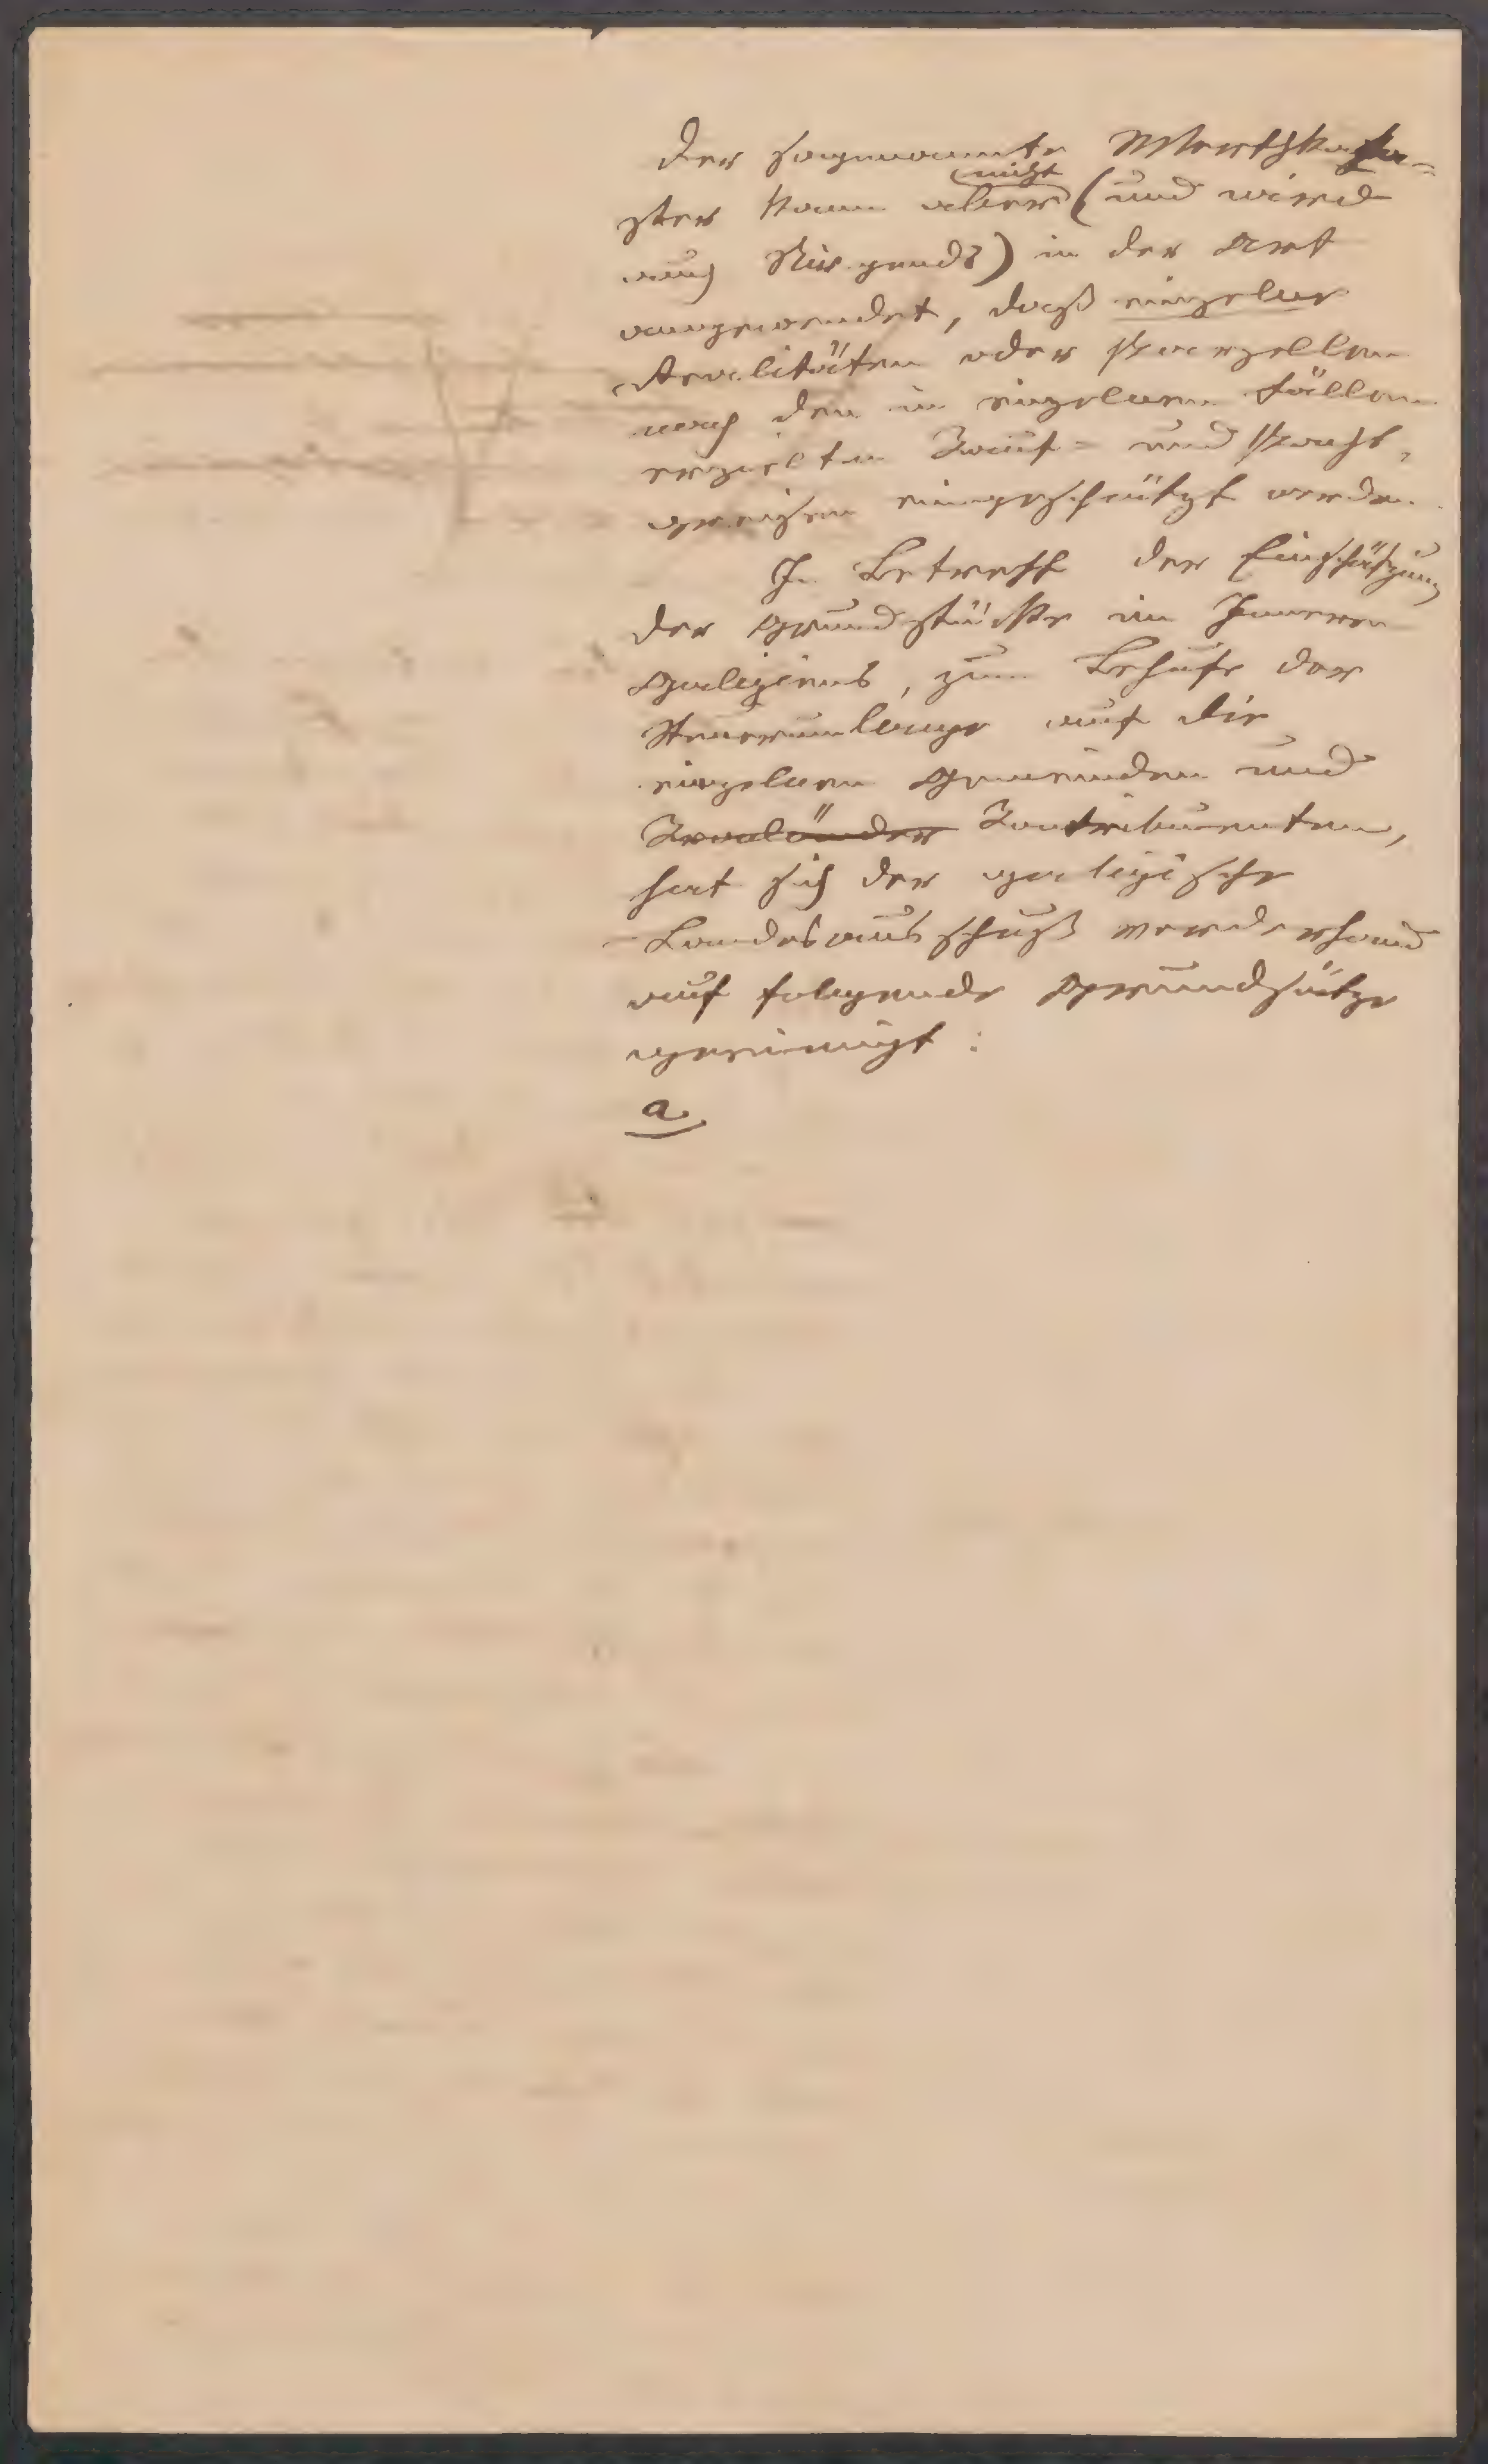 Der sogenannte Werthkata-
ster kann aber nicht (und wird
auch Nirgends) in der Art
angewendet, daß einzelne
Realitäten oder Parzellen
nach den in einzelnen Fällen
erzielten Kauf- und Pacht-
preisen eingeschätzt werden.
In Betreff der Einschätzung
der Grundstücke im Inneren
Galiziens, zum Behufe der
Steuerumlage auf die
einzelnen Gemeinden und
Kronländer Kontribuenten,
hat sich der galizische
Landesausschuß
auf folgende Grundsätze
geeinigt:
a.